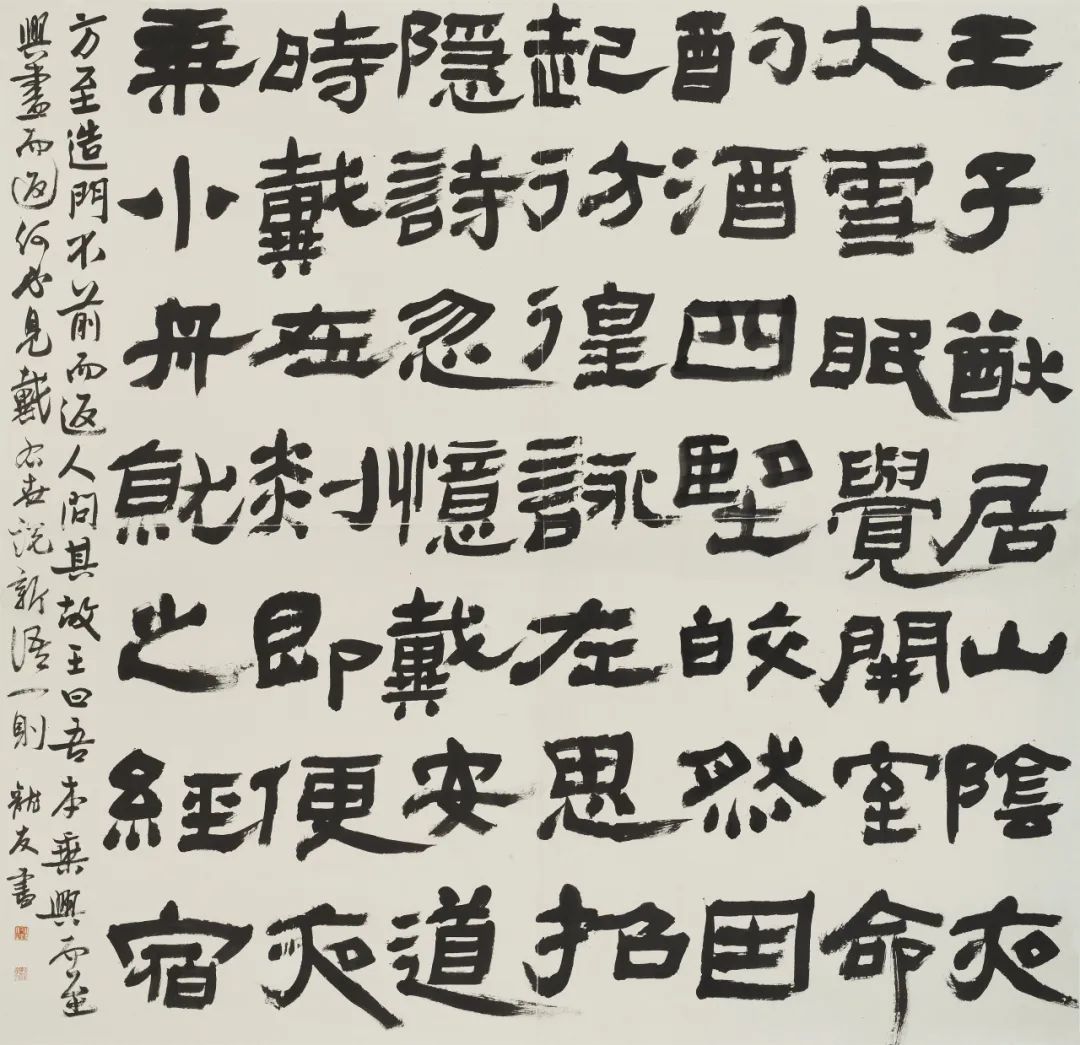 王子猷居山陰夜
大雪眠覺開室命
酌酒四望皎然因
起彷徨詠左思招
隱詩忽憶戴安道
時戴在剡即便夜
乘小舟就之經宿
方至造門不前而返人問其故王曰吾本乘興而至
興盡而返何必見戴右世說新語一則 友書